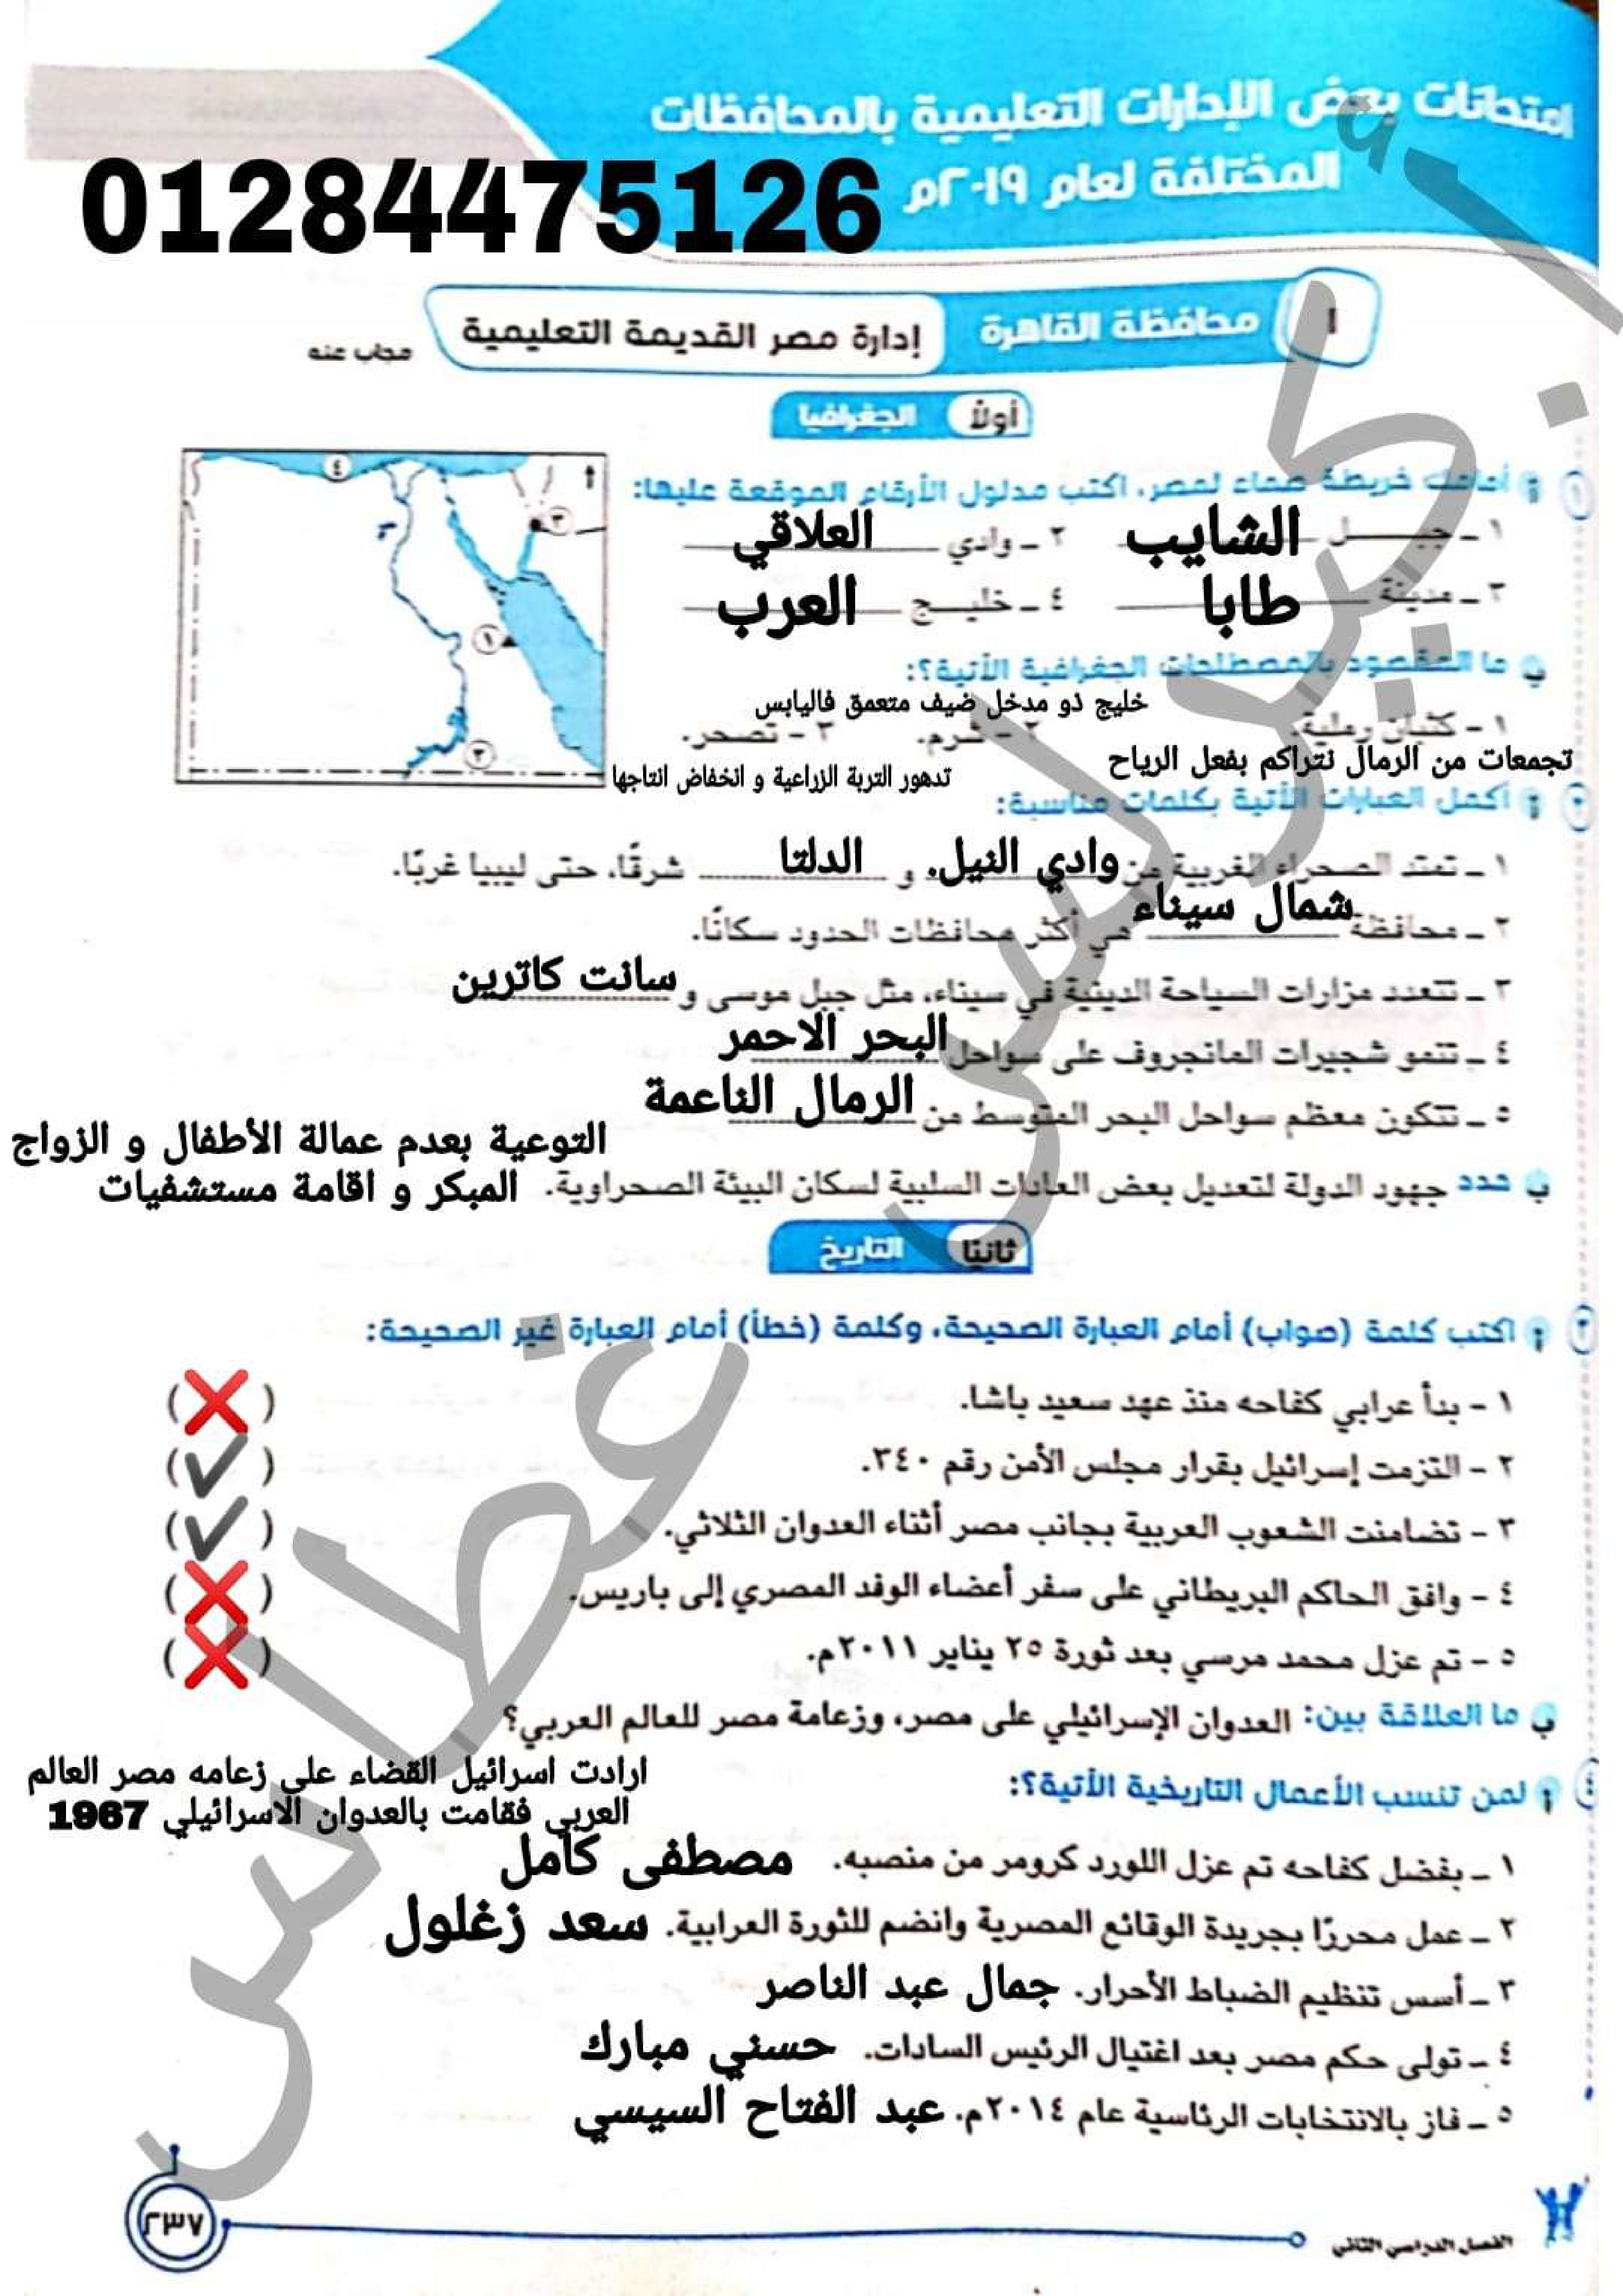 امتحانات بعض الإدارات التعليمية بالمحافظات
المختلفة لعام ٢٠١٩م
01284475126
١ محافظة القاهرة إدارة مصر القديمة التعليمية مجاب عنه
أولاً الجغرافيا
١ أ أمامك خريطة صماء لمصر، اكتب مدلول الأرقام الموقعة عليها:
١ - جبــل الشايب ٢ - وادي العلاقي
٣ - مدينة طابا ٤ - خليــج العرب
٤
٣
١
٢
ب ما المقصود بالمصطلحات الجغرافية الآتية؟:
خليج ذو مدخل ضيف متعمق فاليابس
١ - كثبان رملية. ٢ - شرم. ٣ - تصحر.
تجمعات من الرمال نتراكم بفعل الرياح
تدهور التربة الزراعية و انخفاض انتاجها
٢ أ أكمل العبارات الآتية بكلمات مناسبة:
١ - تمتد الصحراء الغربية من وادي النيل. و الدلتا شرقًا، حتى ليبيا غربًا.
٢ - محافظة شمال سيناء هي أكثر محافظات الحدود سكانًا.
٣ - تتعدد مزارات السياحة الدينية في سيناء، مثل جبل موسى و سانت كاترين
٤ - تنمو شجيرات المانجروف على سواحل البحر الاحمر
٥ - تتكون معظم سواحل البحر المتوسط من الرمال الناعمة
التوعية بعدم عمالة الأطفال و الزواج
ب حدد جهود الدولة لتعديل بعض العادات السلبية لسكان البيئة الصحراوية. المبكر و اقامة مستشفيات
ثانيًا التاريخ
٣ أ اكتب كلمة (صواب) أمام العبارة الصحيحة، وكلمة (خطأ) أمام العبارة غير الصحيحة:
١ - بدأ عرابي كفاحه منذ عهد سعيد باشا. (❌)
٢ - التزمت إسرائيل بقرار مجلس الأمن رقم ٣٤٠. (✔)
٣ - تضامنت الشعوب العربية بجانب مصر أثناء العدوان الثلاثي. (✔)
٤ - وافق الحاكم البريطاني على سفر أعضاء الوفد المصري إلى باريس. (❌)
٥ - تم عزل محمد مرسي بعد ثورة ٢٥ يناير ٢٠١١م. (❌)
ب ما العلاقة بين: العدوان الإسرائيلي على مصر، وزعامة مصر للعالم العربي؟
ارادت اسرائيل القضاء على زعامه مصر العالم
العربي فقامت بالعدوان الاسرائيلي 1967
٤ أ لمن تنسب الأعمال التاريخية الآتية؟:
١ - بفضل كفاحه تم عزل اللورد كرومر من منصبه. مصطفى كامل
٢ - عمل محررًا بجريدة الوقائع المصرية وانضم للثورة العرابية. سعد زغلول
٣ - أسس تنظيم الضباط الأحرار. جمال عبد الناصر
٤ - تولى حكم مصر بعد اغتيال الرئيس السادات. حسني مبارك
٥ - فاز بالانتخابات الرئاسية عام ٢٠١٤م. عبد الفتاح السيسي
الفصل الدراسي الثاني
٢٣٧